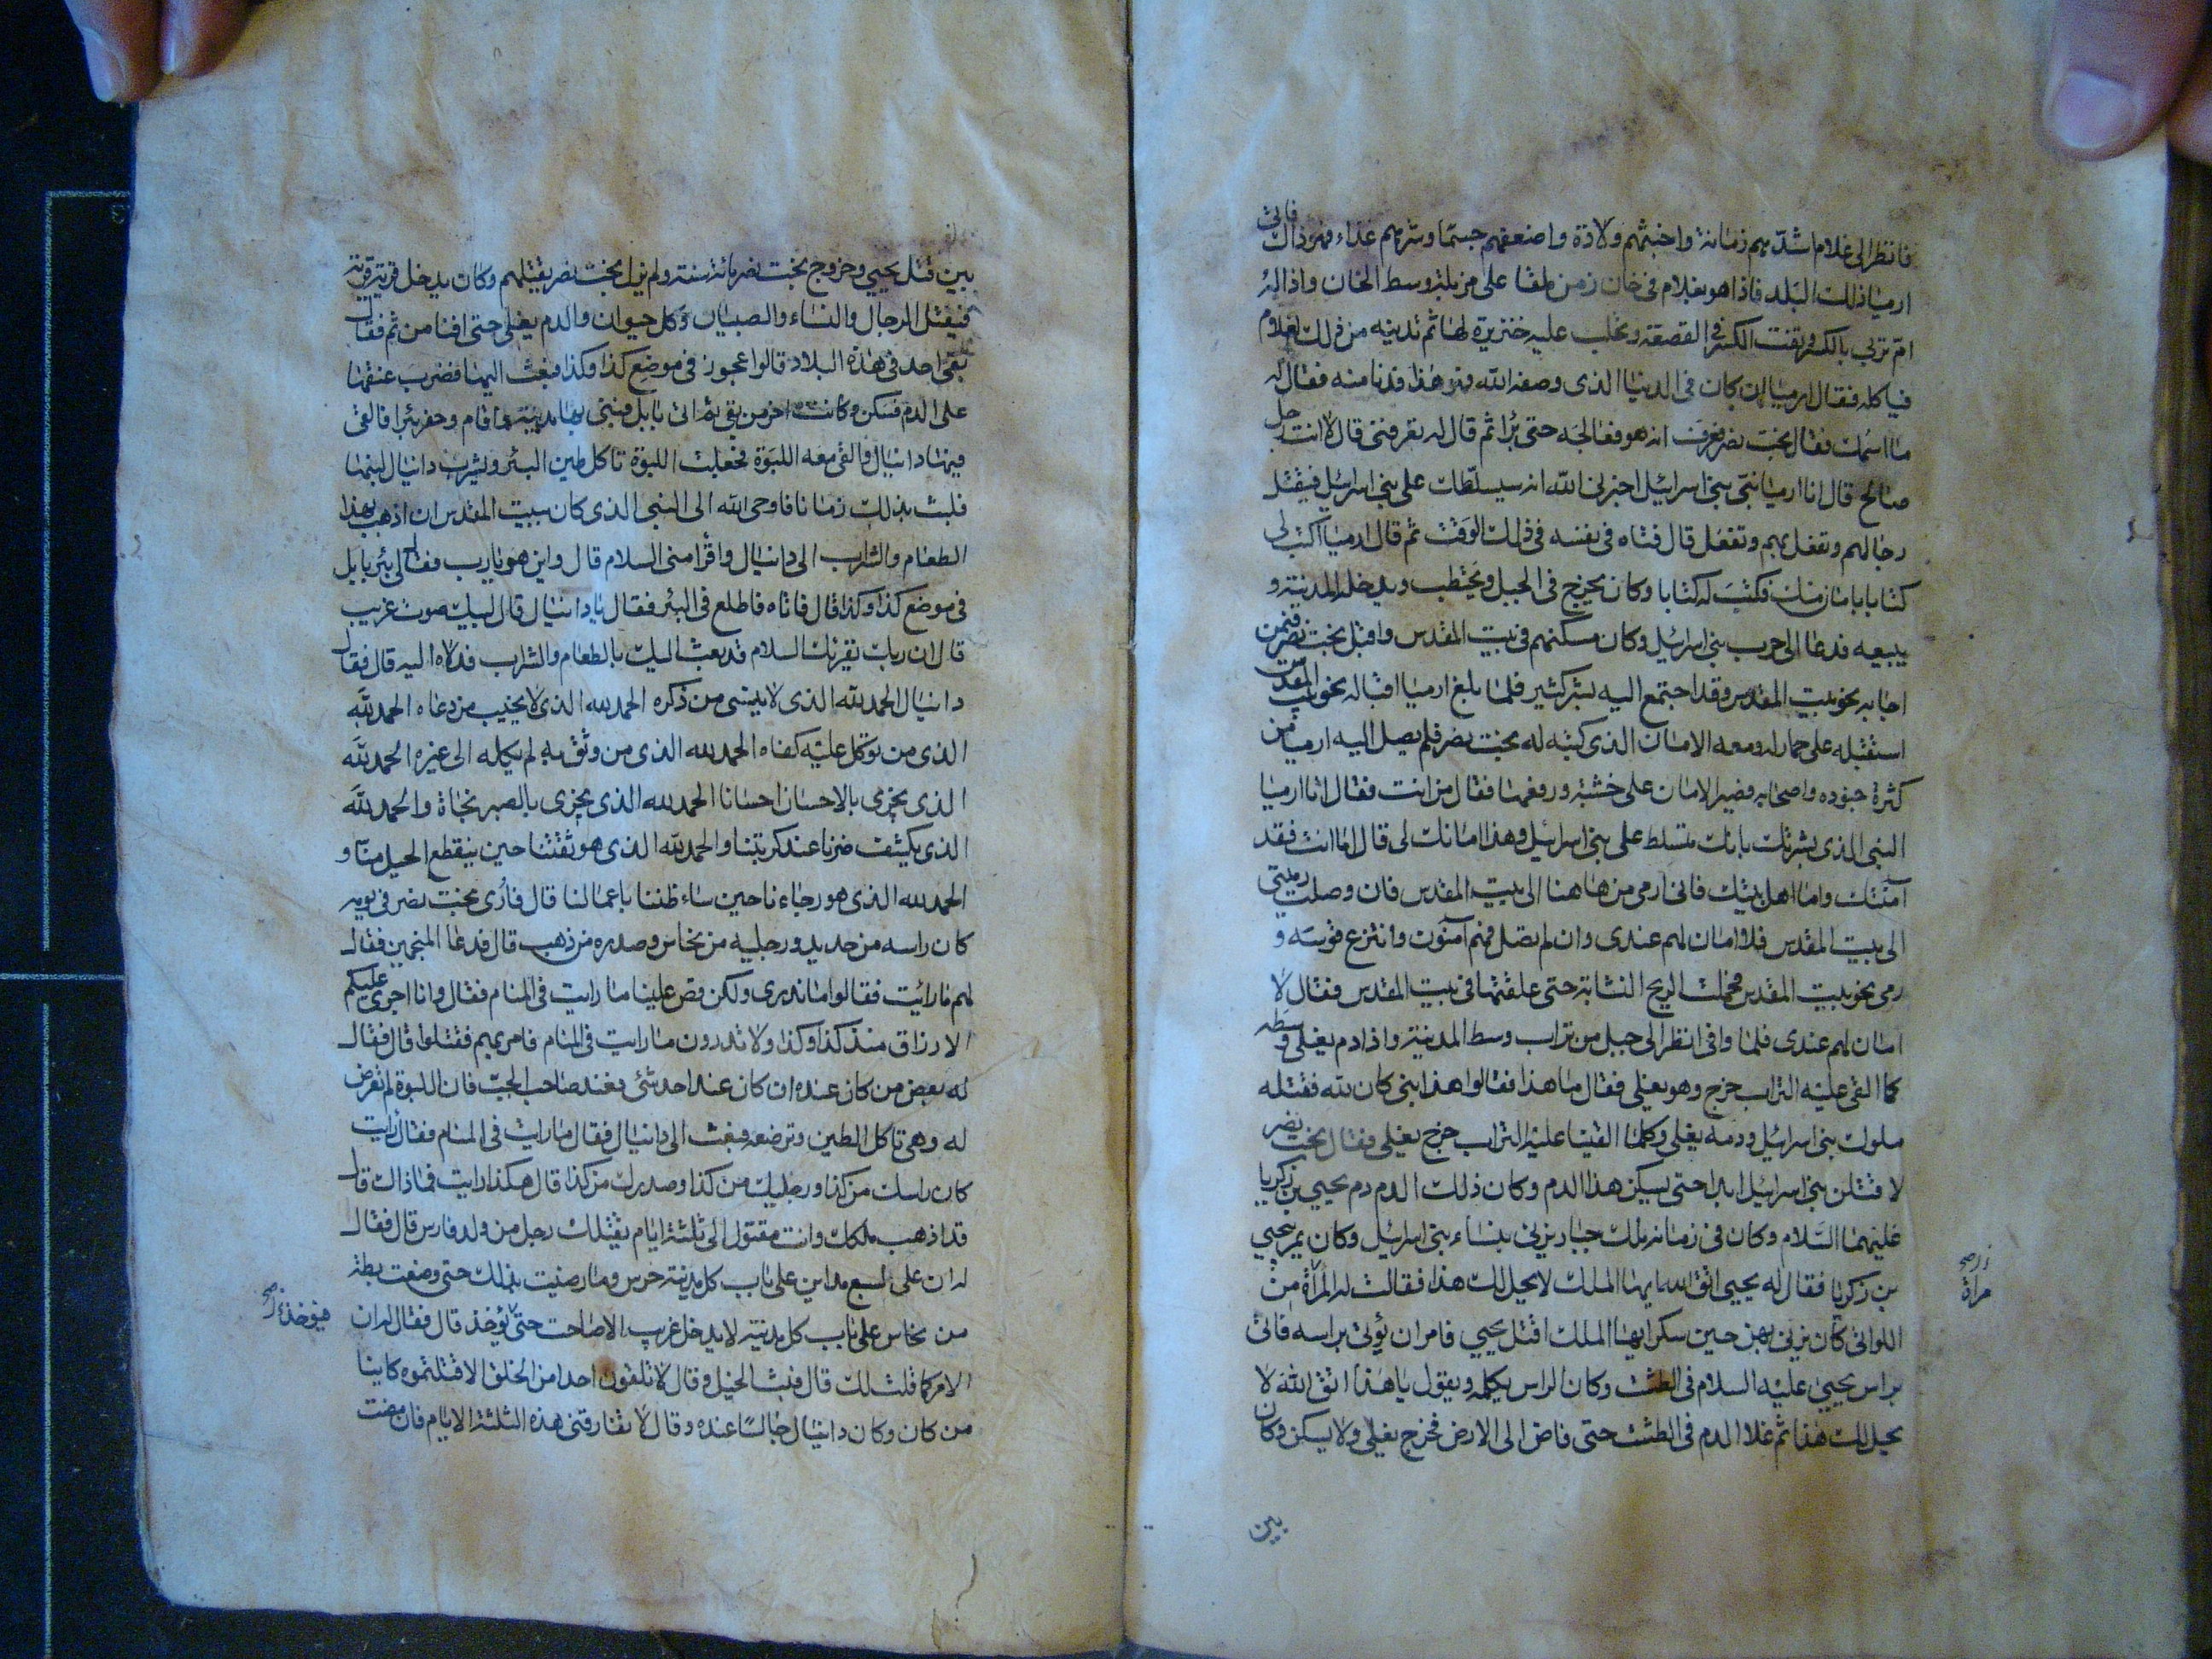 فانظر الى غلام اشدّهم زمانة واخبثهم ولادة واضعفهم جسما وشرهم غذاء فهو ذاك فاتى
ارميا ذلك البلد فاذا هو بغلام فى خان زمن ملقا على مزبلة وسط الخان واذا له
امّ تربى بالكسر وتفتّ الكسر فى القصعة وتحلب عليه خنزيرة لها ثم تدنيه من ذلك الغلام
فياكله فقال ارميا ان كان فى الدنيا الذى وصفه الله فهو هذا فدنا منه فقال له
ما اسمك فقال بخت نصر فعرف انه هو فعالجه حتى برأ ثم قال له تعرفنى قال لا انت رجل
صالح قال انا ارميا نبىّ بنى اسرائيل اخبرنى الله انه سيسلّطك على بنى اسرائيل فيقتل
رجالهم وتفعل بهم وتفعل قال فتاه فى نفسه فى ذلك الوقت ثم قال ارميا اكتب لى
كتابا بامان منك فكتب له كتابا وكان يخرج فى الجبل ويحتطب ويدخله المدينة و
يبيعه فدعا الى حرب بنى اسرائيل وكان مسكنهم فى بيت المقدس واقبل بخت نصر فيمن
اجابه نحو بيت المقدس وقد اجتمع اليه بشر كثير فلما بلغ ارميا اقباله نحو بيت المقدس
استقبله على حمار له ومعه الامان الذى كتبه له بخت نصر فلم يصل اليه ارميا من
كثرة جنوده واصحابه فصير الامان على خشبة ورفعها فقال من انت فقال انا ارميا
النبى الذى بشرتك بانك تسلط على بنى اسرائيل وهذا امانك لى قال اما انت فقد
آمنتك واما اهل بيتك فانى ارمى من هاهنا الى بيت المقدس فان وصلت رميتى
الى بيت المقدس فلا امان لهم عندى وان لم تصل فهم آمنون وانتزع قوسه و
رمى نحو بيت المقدس فحملت الريح النشابة حتى علقتها فى بيت المقدس فقال لا
امان لهم عندى فلما وافى انظر الى جبل من تراب وسط المدينة واذا دم يغلى وسطه
كلما القى عليه التراب خرج وهو يغلى فقال ما هذا فقالوا هذا نبى كان لله فقتله
ملوك بنى اسرائيل ودمه يغلى وكلما القينا عليه التراب خرج يغلى فقال بخت نصر
لاقتلن بنى اسرائيل ابدا حتى يسكن هذا الدم وكان ذلك الدم دم يحيى بن زكريا
عليهما السّلام وكان فى زمانه ملك جبار يزنى بنساء بنى اسرائيل وكان يمر بيحيى
بن زكريا فقال له يحيى اتّق الله ايها الملك لا يحل لك هذا فقالت له المرأة من
مرأة
اللواتى كان يزنى بهن حين سكر ايها الملك اقتل يحيى فامر ان يؤتى براسه فاتى
براس يحيى عليه السلام فى الطشت وكان الراس يكلمه ويقول يا هذا اتق الله لا
يحل لك هذا ثم غلا الدم فى الطشت حتى فاض الى الارض فخرج يغلى ولا يسكن وكان
بين
بين قتل يحيى وخروج بخت نصر مائة سنة ولم يزل بخت نصر يقتلهم وكان يدخل قرية قرية
فيقتل الرجال والنساء والصبيان وكل حيوان والدم يغلى حتى افنا من ثم فقال
بقى احد فى هذه البلاد قالوا عجوز فى موضع كذا وكذا فبعث اليها فضرب عنقها
على الدم فسكن وكانت اخر من بقى ثم اتى بابل فبنى بها مدينة واقام وحفر بئرا فالقى
فيها دانيال والقى معه اللبوة فجعلت اللبوة تاكل طين البئر ويشرب دانيال لبنها
فلبث بذلك زمانا فاوحى الله الى النبى الذى كان ببيت المقدس ان اذهب بهذا
الطعام والشراب الى دانيال واقرأ منى السلام قال واين هو يا رب فقال فى بئر بابل
فى موضع كذا وكذا قال فاتاه فاطلع فى البئر فقال يا دانيال قال لبيك صوت غريب
قال ان ربك يقرئك السلام قد بعث اليك بالطعام والشراب فدلاه اليه قال فقال
دانيال الحمد لله الذى لا ينسى من ذكره الحمد لله الذى لا يخيب من دعاه الحمد لله
الذى من توكل عليه كفاه الحمد لله الذى من وثق به لم يكله الى غيره الحمد لله
الذى يجزى بالاحسان احسانا الحمد لله الذى يجزى بالصبر نجاة والحمد لله
الذى يكشف ضرنا عند كربتنا والحمد لله الذى هو ثقتنا حين ينقطع الحيل منا و
الحمد لله الذى هو رجاءنا حين ساء ظننا باعمالنا قال فأرى بخت نصر فى نومه
كان راسه من حديد ورجليه من نحاس وصدره من ذهب قال فدعا المنجمين فقال
لهم ما رأيت فقالوا ما ندرى ولكن قص علينا ما رايت فى المنام فقال وانا اجرى عليكم
الارزاق منذ كذا وكذا ولا تدرون ما رايت فى المنام فامر بهم فقتلوا قال فقال
له بعض من كان عنده ان كان عند احد شئ فعند صاحب الجب فان اللبوة لم تعرض
له وهى تاكل الطين وترضعه فبعث الى دانيال فقال ما رايت فى المنام فقال رأيت
كان راسك من كذا ورجليك من كذا وصدرك من كذا قال هكذا رايت فما ذاك قال
قد ذهب ملكك وانت مقتول الى ثلثة ايام يقتلك رجل من ولد فارس قال فقال
له ان على لسبع مداين على باب كل مدينة حرس وما رضيت بذلك حتى وضعت بطة
من نحاس على باب كل مدينة لا يدخل غريب الا صاحت حتى يؤخذ قال فقال له ان
فيؤخذ
الامر كما قلت لك قال فبث الخيل وقال لا تلقون احدا من الخلق الا قتلتموه كاينا
من كان وكان دانيال جالسا عنده وقال لا تفارقنى هذه الثلثة الايام فان مضت